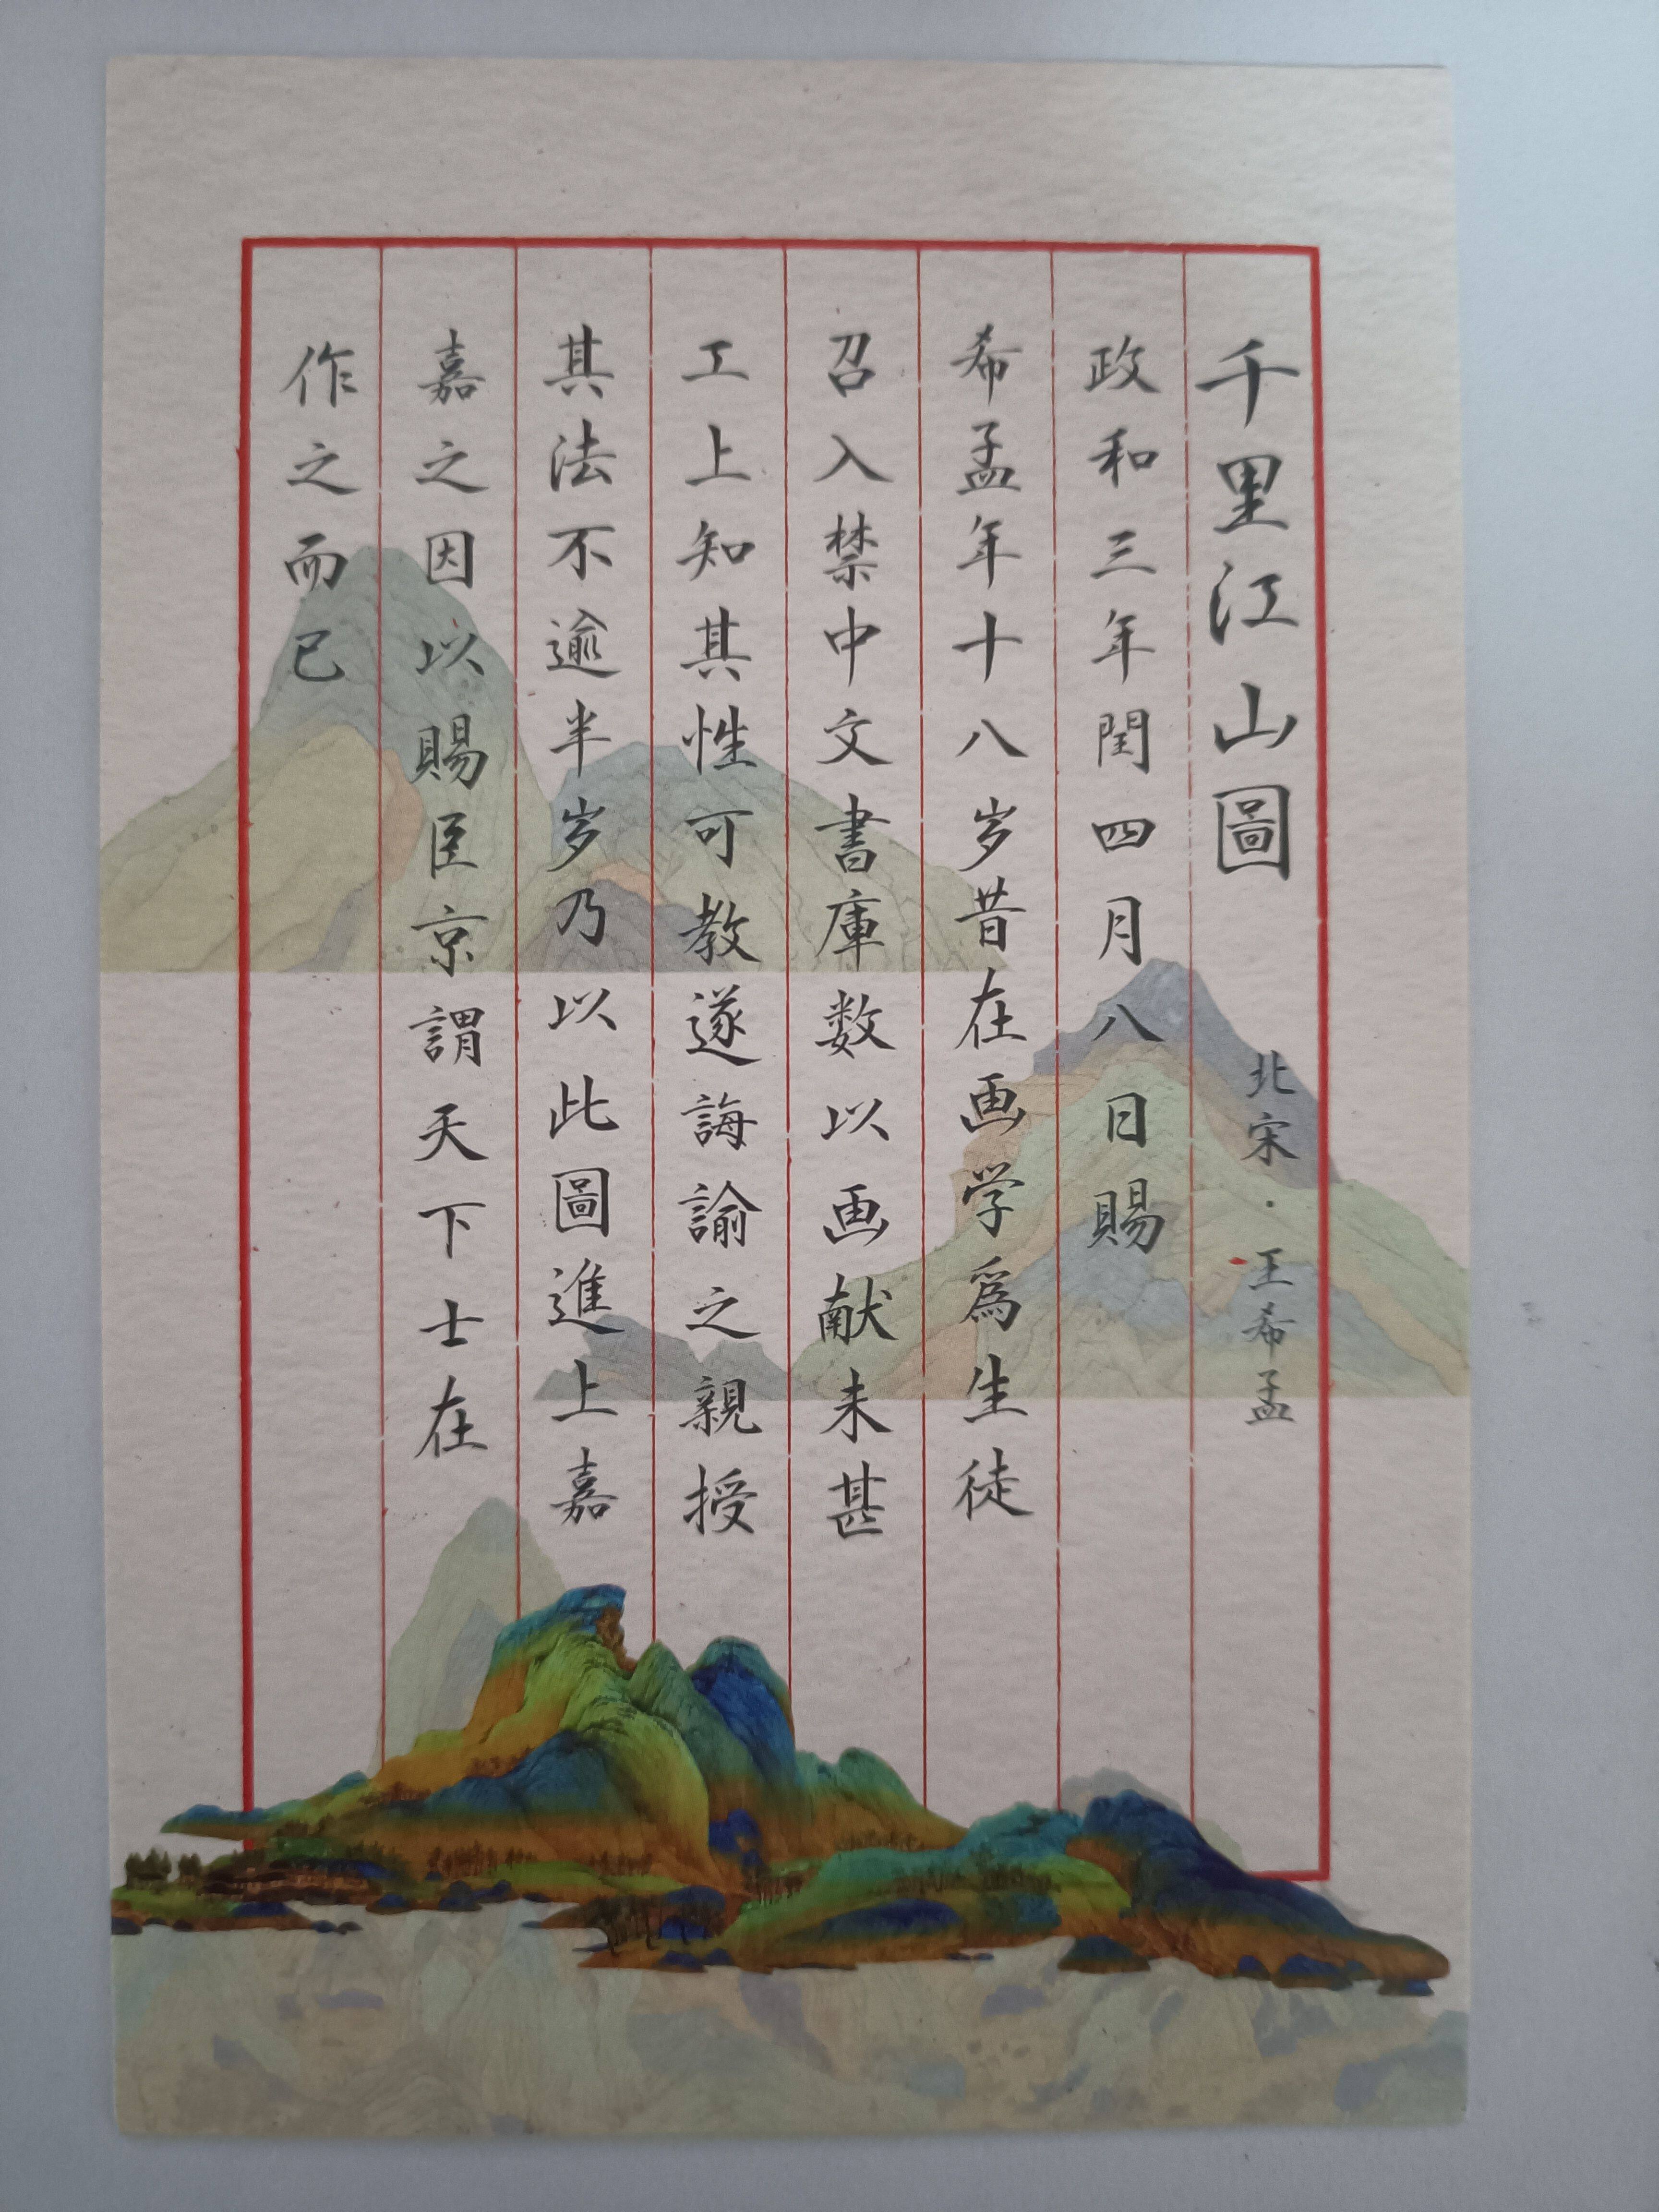 千里江山圖
北宋·王希孟
政和三年閏四月八日賜
希孟年十八岁昔在画学爲生徒
召入禁中文書庫数以画献未甚
工上知其性可教遂誨諭之親授
其法不逾半岁乃以此圖進上嘉
嘉之因以賜臣京謂天下士在
作之而已